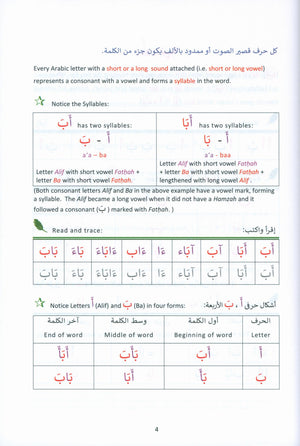 كل حرف قصير الصوت أو ممدود بالألف يكون جزء من الكلمة.
Every Arabic letter with a short or a long sound attached (i.e. short or long vowel)
represents a consonant with a vowel and forms a syllable in the word.
Notice the Syllables:
أَبَ has two syllables:
أَ - بَ
a'a – ba
Letter Alif with short vowel Fatḥah +
letter Ba with short vowel Fatḥah.
أَبَا has two syllables:
أَ - بَا
a'a - baa
Letter Alif with short vowel Fatḥah
+ letter Ba with short vowel Fatḥah +
lengthened with long vowel Alif.
(Both consonant letters Alif and Ba in the above example have a vowel mark, forming
a syllable. The Alif became a long vowel when it did not have a Hamzah and it
followed a consonant (بَ) marked with Fatḥah.)
Read and trace:
إقرأ واكتب:
Notice Letters أ (Alif) and بَ (Ba) in four forms:
أشكال حرفي أ ، بَ الأربعة:
الحرف
Letter
أول الكلمة
Beginning of word
وسط الكلمة
Middle of word
آخر الكلمة
End of word
4